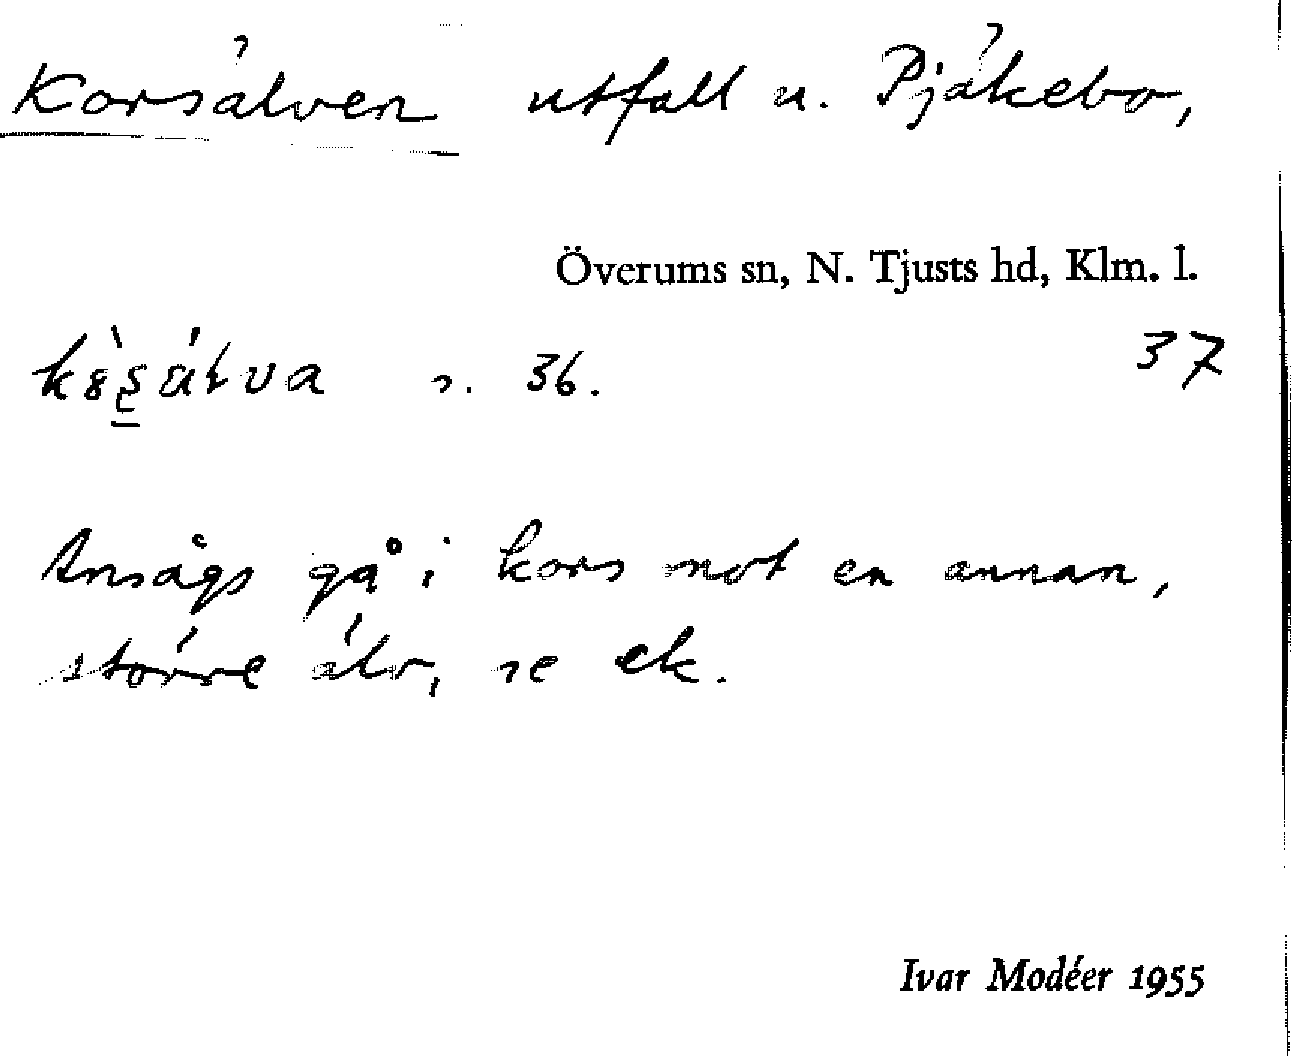 Korsälven utfall u. Pjäkebo,
Överums sn, N. Tjusts hd, Klm. l.
s. 36. 37
Ansågs gå i kors mot en annan,
större älv, se ek.
Ivar Modéer 1955